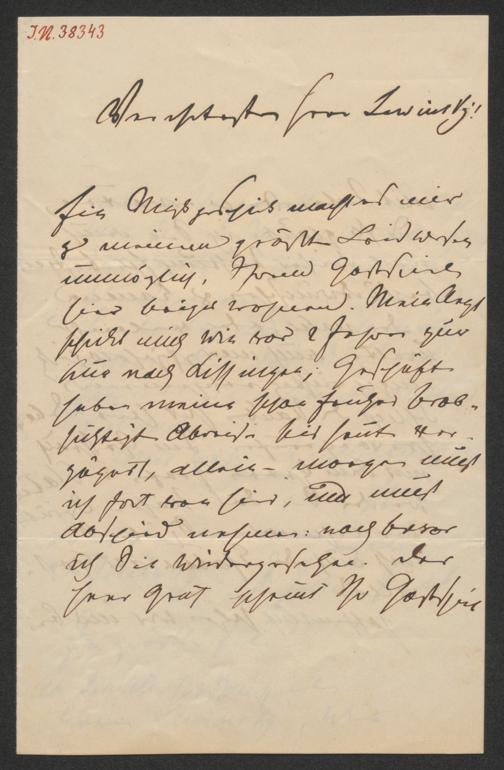 I.N. 38343
Verehrtester Herr Lewinsky!
Ein Mißgeschick macht es mir
zu meinem größten Leidwesen
unmöglich, Ihrem Gastspiele
hier beizuwohnen. Mein Arzt
schickt mich wie vor 2 Jahren zur
Kur nach Kissingen; Geschäfte
haben meine schon früher beab-
sichtigte Abreise bis heute ver-
zögert, allein – morgen muß
ich fort von hier, und muß
Abschied nehmen: noch bevor
ich Sie wiedergesehen. Der
Herr Graf scheint Ihr Gastspiel